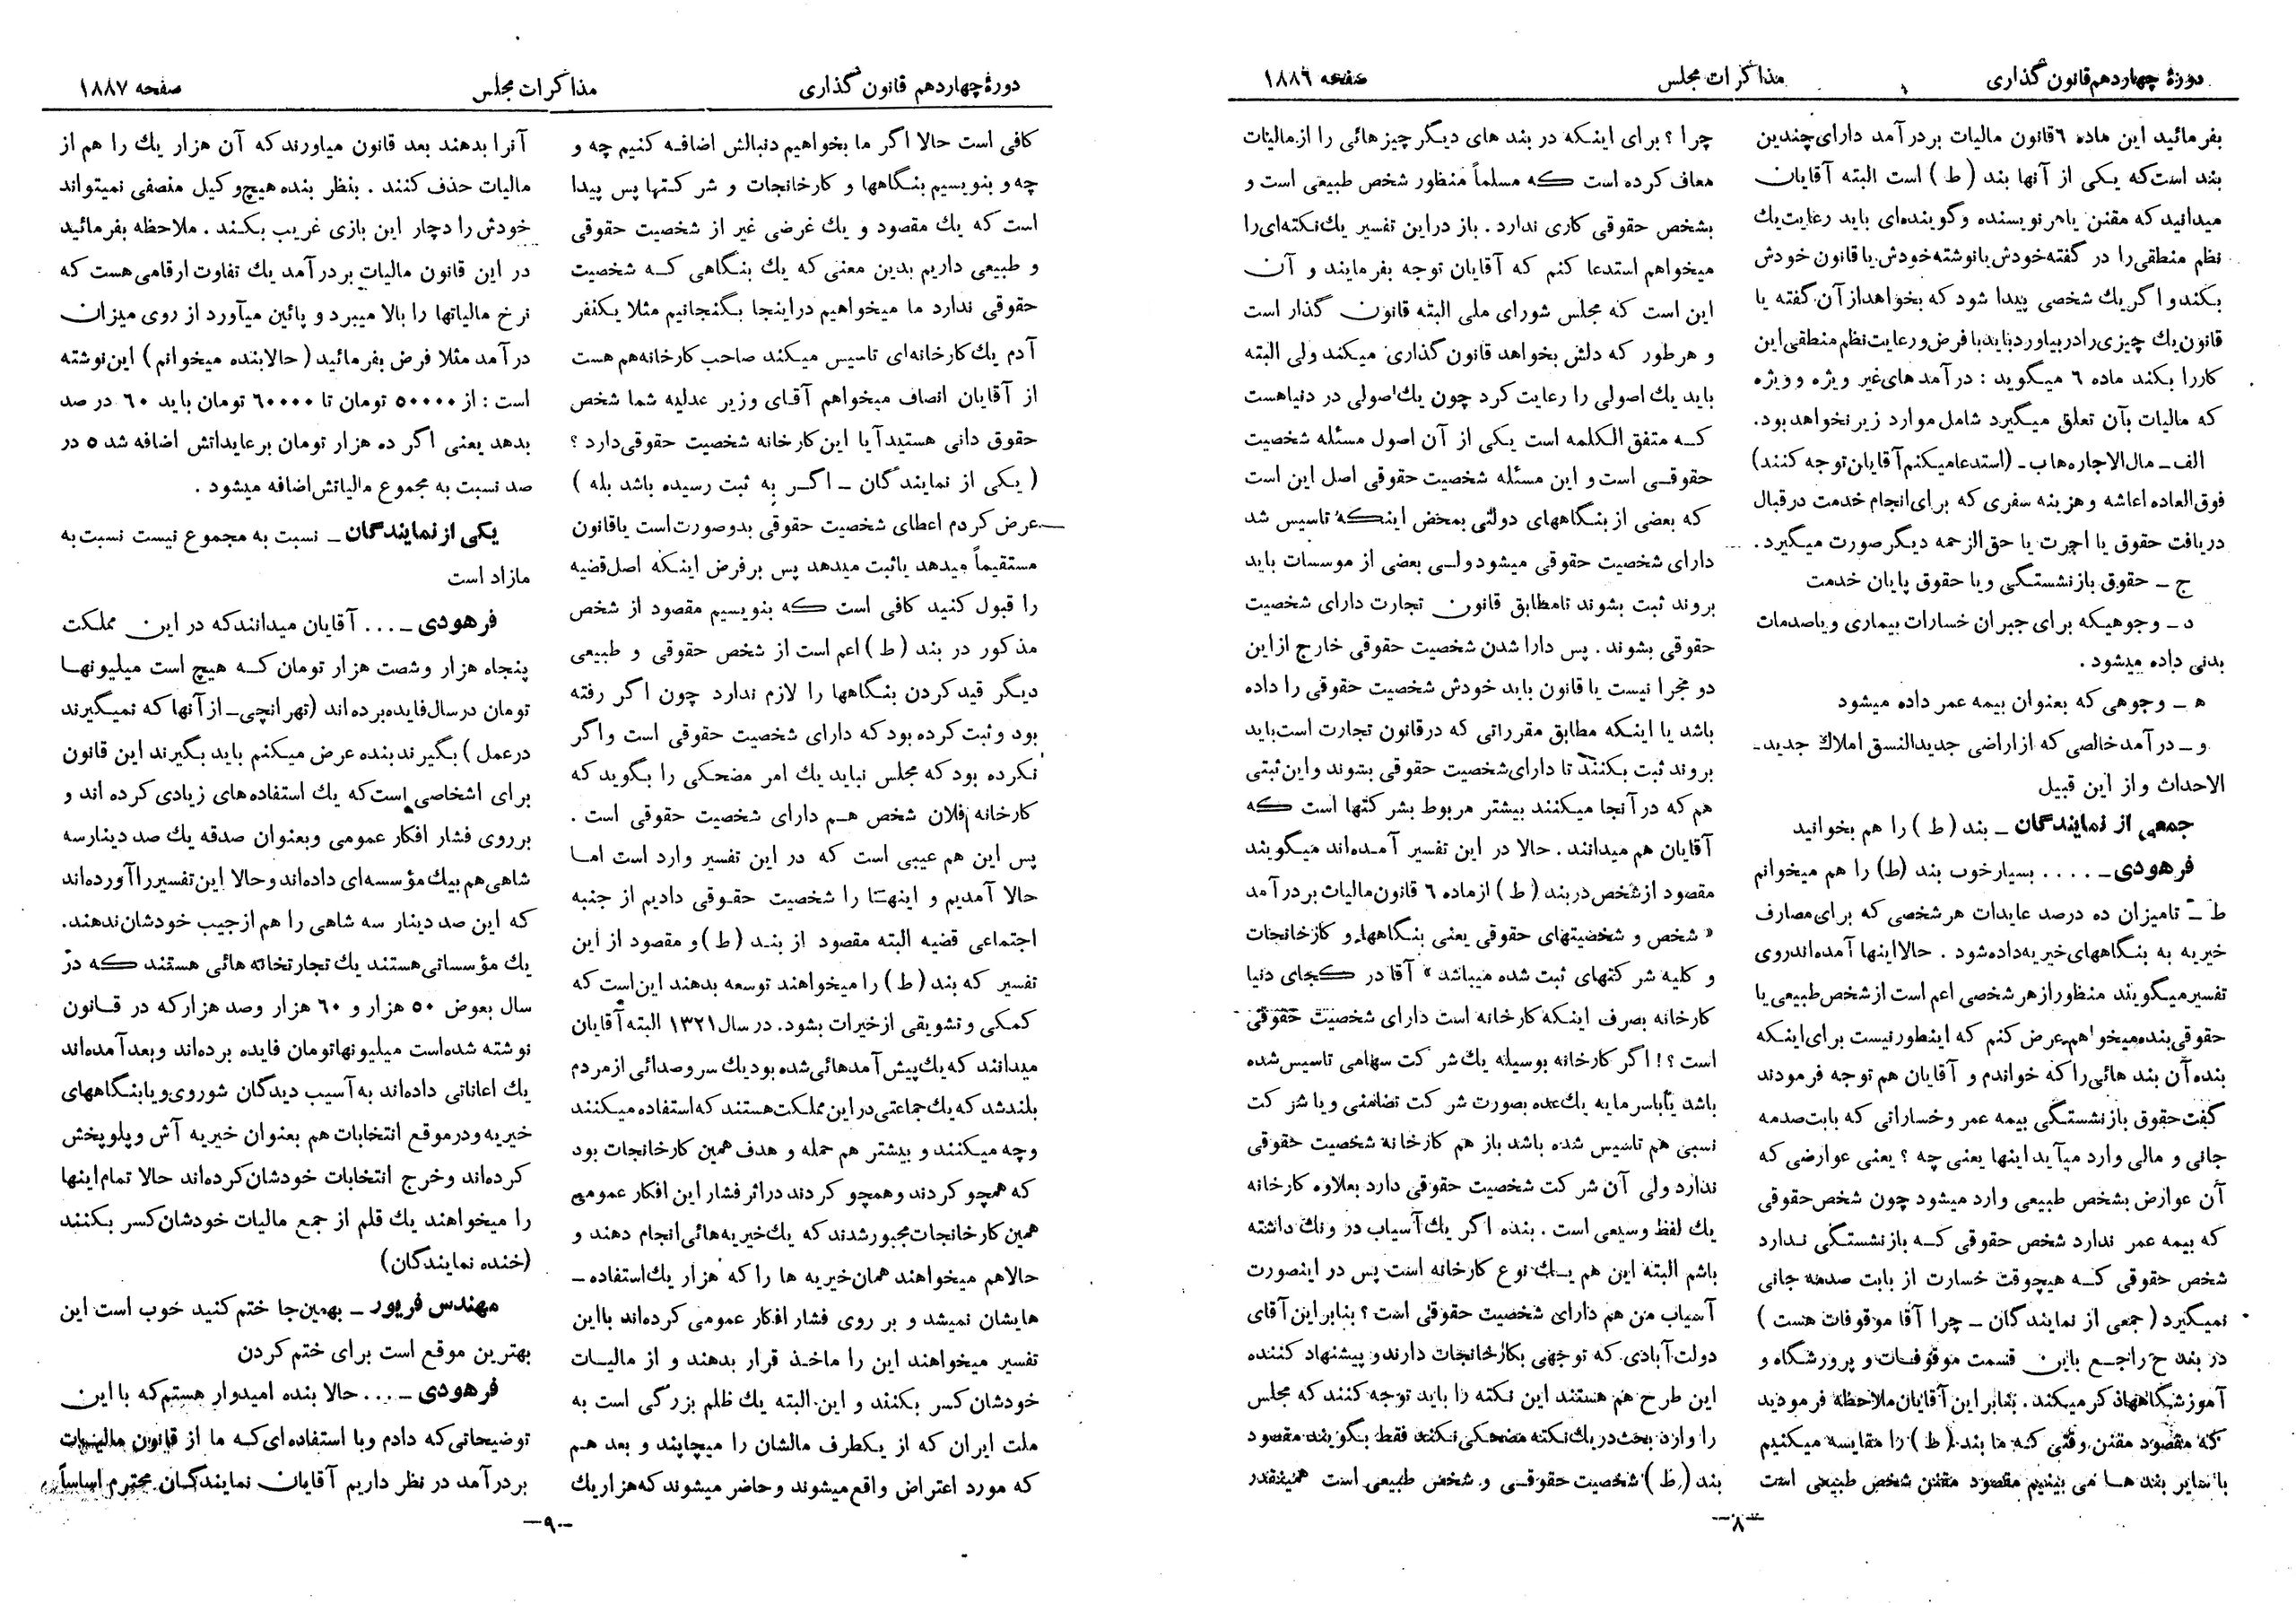 دورهٔ چهاردهم قانون گذاری
مذاکرات مجلس
صفحه ۱۸۸۶
بفرمائید این ماده ۶ قانون مالیات بر درآمد دارای چندین
بند است که یکی از آنها بند (ط) است البته آقایان
میدانید که مقنن یا هر نویسنده و گوینده‌ای باید رعایت یك
نظم منطقی را در گفته خودش یا نوشته خودش یا قانون خودش
بکند و اگر یك شخصی پیدا شود که بخواهد از آن گفته یا
قانون یك چیزی را در بیاورد باید با فرض و رعایت نظم منطقی این
کار را بکند ماده ۶ میگوید : درآمدهای غیر ویژه و ویژه
که مالیات بآن تعلق میگیرد شامل موارد زیر نخواهد بود.
الف ـ مال‌الاجاره‌ها ب ـ (استدعا میکنم آقایان توجه کنند)
فوق‌العاده اعاشه و هزینه سفری که برای انجام خدمت در قبال
دریافت حقوق یا اجرت یا حق‌الزحمه دیگر صورت میگیرد.
ج ـ حقوق بازنشستگی و یا حقوق پایان خدمت
د ـ وجوهیکه برای جبران خسارات بیماری و یا صدمات
بدنی داده میشود .
ه ـ وجوهی که بعنوان بیمه عمر داده میشود
و ـ درآمد خالصی که از اراضی جدیدالنسق املاك جدید ـ
الاحداث و از این قبیل
جمعی از نمایندگان ـ بند (ط) را هم بخوانید
فرهودی ـ .... بسیار خوب بند (ط) را هم میخوانم
ط ـ تا میزان ده درصد عایدات هر شخصی که برای مصارف
خیریه به بنگاههای خیریه داده شود . حالا اینها آمده‌اند روی
تفسیر میگویند منظور از هر شخصی اعم است از شخص طبیعی یا
حقوقی بنده میخواهم عرض کنم که اینطور نیست برای اینکه
بنده آن بند هائی را که خواندم و آقایان هم توجه فرمودند
گفت حقوق بازنشستگی بیمه عمر و خساراتی که بابت صدمه
جانی و مالی وارد میآید اینها یعنی چه ؟ یعنی عوارضی که
آن عوارض بشخص طبیعی وارد میشود چون شخص حقوقی
که بیمه عمر ندارد شخص حقوقی که بازنشستگی ندارد
شخص حقوقی که هیچوقت خسارت از بابت صدمه جانی
نمیگیرد (جمعی از نمایندگان ـ چرا آقا موقوفات هست )
در بند ح راجع باین قسمت موقوفات و پرورشگاه و
آموزشگاهها ذکر میکند . بنابر این آقایان ملاحظه فرمودید
که مقصود مقنن وقتی که ما بند (ط) را مقایسه میکنیم
با سایر بند ها می بینیم مقصود مقنن شخص طبیعی است
چرا ؟ برای اینکه در بند های دیگر چیز هائی را از مالیات
معاف کرده است که مسلماً منظور شخص طبیعی است و
بشخص حقوقی کاری ندارد . باز در این تفسیر یك نکته‌ای را
میخواهم استدعا کنم که آقایان توجه بفرمایند و آن
این است که مجلس شورای ملی البته قانون گذار است
و هر طور که دلش بخواهد قانون گذاری میکند ولی البته
باید یك اصولی را رعایت کرد چون یك اصولی در دنیا هست
که متفق الکلمه است یکی از آن اصول مسئله شخصیت
حقوقی است و این مسئله شخصیت حقوقی اصل این است
که بعضی از بنگاههای دولتی بمحض اینکه تاسیس شد
دارای شخصیت حقوقی میشود ولی بعضی از موسسات باید
بروند ثبت بشوند تا مطابق قانون تجارت دارای شخصیت
حقوقی بشوند . پس دارا شدن شخصیت حقوقی خارج از این
دو مجرا نیست یا قانون باید خودش شخصیت حقوقی را داده
باشد یا اینکه مطابق مقرراتی که در قانون تجارت است باید
بروند ثبت بکنند تا دارای شخصیت حقوقی بشوند و این ثبتی
هم که در آنجا میکنند بیشتر مربوط بشرکتها است که
آقایان هم میدانند . حالا در این تفسیر آمده‌اند میگویند
مقصود از شخص در بند (ط) از ماده ۶ قانون مالیات بر درآمد
« شخص و شخصیتهای حقوقی یعنی بنگاهها و کارخانجات
و کلیه شرکتهای ثبت شده میباشد » آقا در کجای دنیا
کارخانه بصرف اینکه کارخانه است دارای شخصیت حقوقی
است ؟! اگر کارخانه بوسیله یك شرکت سهامی تاسیس شده
باشد یا با سرمایه یك عده بصورت شرکت تضامنی و یا شرکت
نسبی هم تاسیس شده باشد باز هم کارخانه شخصیت حقوقی
ندارد ولی آن شرکت شخصیت حقوقی دارد بعلاوه کارخانه
یك لفظ وسیعی است . بنده اگر یك آسیاب در ونك داشته
باشم البته این هم یك نوع کارخانه است پس در اینصورت
آسیاب من هم دارای شخصیت حقوقی است ؟ بنابر این آقای
دولت‌آبادی که توجهی بکارخانجات دارند و پیشنهاد کننده
این طرح هم هستند این نکته را باید توجه کنند که مجلس
را وارد بحث در یك نکته مضحکی نکند فقط بگویند مقصود
بند (ط) شخصیت حقوقی و شخص طبیعی است همینقدر
ـ۸ـ
دورهٔ چهاردهم قانون گذاری
مذاکرات مجلس
صفحه ۱۸۸۷
کافی است حالا اگر ما بخواهیم دنبالش اضافه کنیم چه و
چه و بنویسیم بنگاهها و کارخانجات و شرکتها پس پیدا
است که یك مقصود و یك غرضی غیر از شخصیت حقوقی
و طبیعی داریم بدین معنی که یك بنگاهی که شخصیت
حقوقی ندارد ما میخواهیم در اینجا بگنجانیم مثلا یکنفر
آدم یك کارخانه‌ای تاسیس میکند صاحب کارخانه هم هست
از آقایان انصاف میخواهم آقای وزیر عدلیه شما شخص
حقوق دانی هستید آیا این کارخانه شخصیت حقوقی دارد ؟
( یکی از نمایندگان ـ اگر به ثبت رسیده باشد بله )
ـ عرض کردم اعطای شخصیت حقوقی بدو صورت است یا قانون
مستقیماً میدهد یا ثبت میدهد پس بر فرض اینکه اصل قضیه
را قبول کنید کافی است که بنویسیم مقصود از شخص
مذکور در بند (ط) اعم است از شخص حقوقی و طبیعی
دیگر قید کردن بنگاهها را لازم ندارد چون اگر رفته
بود و ثبت کرده بود که دارای شخصیت حقوقی است و اگر
نکرده بود که مجلس نباید یك امر مضحکی را بگوید که
کارخانه فلان شخص هم دارای شخصیت حقوقی است .
پس این هم عیبی است که در این تفسیر وارد است اما
حالا آمدیم و اینها را شخصیت حقوقی دادیم از جنبه
اجتماعی قضیه البته مقصود از بند (ط) و مقصود از این
تفسیر که بند (ط) را میخواهند توسعه بدهند این است که
کمکی و تشویقی از خیرات بشود. در سال ۱۳۲۱ البته آقایان
میدانند که یك پیش آمدهائی شده بود یك سر و صدائی از مردم
بلند شد که یك جماعتی در این مملکت هستند که استفاده میکنند
و چه میکنند و بیشتر هم حمله و هدف همین کارخانجات بود
که همچو کردند و همچو کردند در اثر فشار این افکار عمومی
همین کارخانجات مجبور شدند که یك خیریه هائی انجام دهند و
حالا هم میخواهند همان خیریه ها را که هزار یك استفاده ـ
هایشان نمیشد و بر روی فشار افکار عمومی کرده‌اند با این
تفسیر میخواهند این را ماخذ قرار بدهند و از مالیات
خودشان کسر بکنند و این البته یك ظلم بزرگی است به
ملت ایران که از یکطرف مالشان را میچاپند و بعد هم
که مورد اعتراض واقع میشوند و حاضر میشوند که هزار یك
آنرا بدهند بعد قانون میاورند که آن هزار یك را هم از
مالیات حذف کنند . بنظر بنده هیچ وکیل منصفی نمیتواند
خودش را دچار این بازی غریب بکند . ملاحظه بفرمائید
در این قانون مالیات بر درآمد یك تفاوت ارقامی هست که
نرخ مالیاتها را بالا میبرد و پائین میآورد از روی میزان
درآمد مثلا فرض بفرمائید (حالا بنده میخوانم) این نوشته
است : از ۵۰۰۰۰ تومان تا ۶۰۰۰۰ تومان باید ۶۰ در صد
بدهد یعنی اگر ده هزار تومان بر عایداتش اضافه شد ۵ در
صد نسبت به مجموع مالیاتش اضافه میشود .
یکی از نمایندگان ـ نسبت به مجموع نیست نسبت به
مازاد است
فرهودی ـ ... آقایان میدانند که در این مملکت
پنجاه هزار و شصت هزار تومان که هیچ است میلیونها
تومان در سال فایده برده اند (تهرانچی ـ از آنها که نمیگیرند
در عمل ) بگیرند بنده عرض میکنم باید بگیرند این قانون
برای اشخاصی است که یك استفاده های زیادی کرده اند و
بر روی فشار افکار عمومی و بعنوان صدقه یك صد دینار سه
شاهی هم بیك مؤسسه‌ای داده‌اند و حالا این تفسیر را آورده‌اند
که این صد دینار سه شاهی را هم از جیب خودشان ندهند.
یك مؤسساتی هستند یك تجارتخانه هائی هستند که در
سال بعوض ۵۰ هزار و ۶۰ هزار و صد هزار که در قانون
نوشته شده است میلیونها تومان فایده برده‌اند و بعد آمده‌اند
یك اعاناتی داده‌اند به آسیب دیدگان شوروی و یا بنگاههای
خیریه و در موقع انتخابات هم بعنوان خیریه آش و پلو پخش
کرده‌اند و خرج انتخابات خودشان کرده‌اند حالا تمام اینها
را میخواهند یك قلم از جمع مالیات خودشان کسر بکنند
(خنده نمایندگان)
مهندس فریور ـ بهمین جا ختم کنید خوب است این
بهترین موقع است برای ختم کردن
فرهودی ـ ... حالا بنده امیدوار هستم که با این
توضیحاتی که دادم و با استفاده‌ای که ما از قانون مالیات
بر درآمد در نظر داریم آقایان نمایندگان محترم اساساً
ـ۹ـ